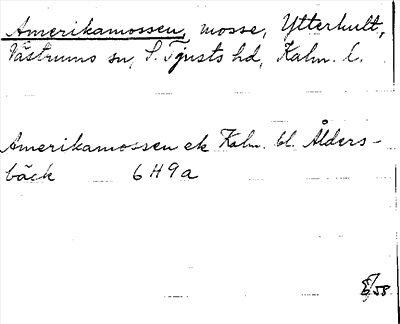 Amerikamossen, mosse, Ytterhult,
Västrums sn, S. Tjusts hd, Kalm. l.
Amerikamossen ek Kalm. bl. Ålders-
bäck 6 H 9 a